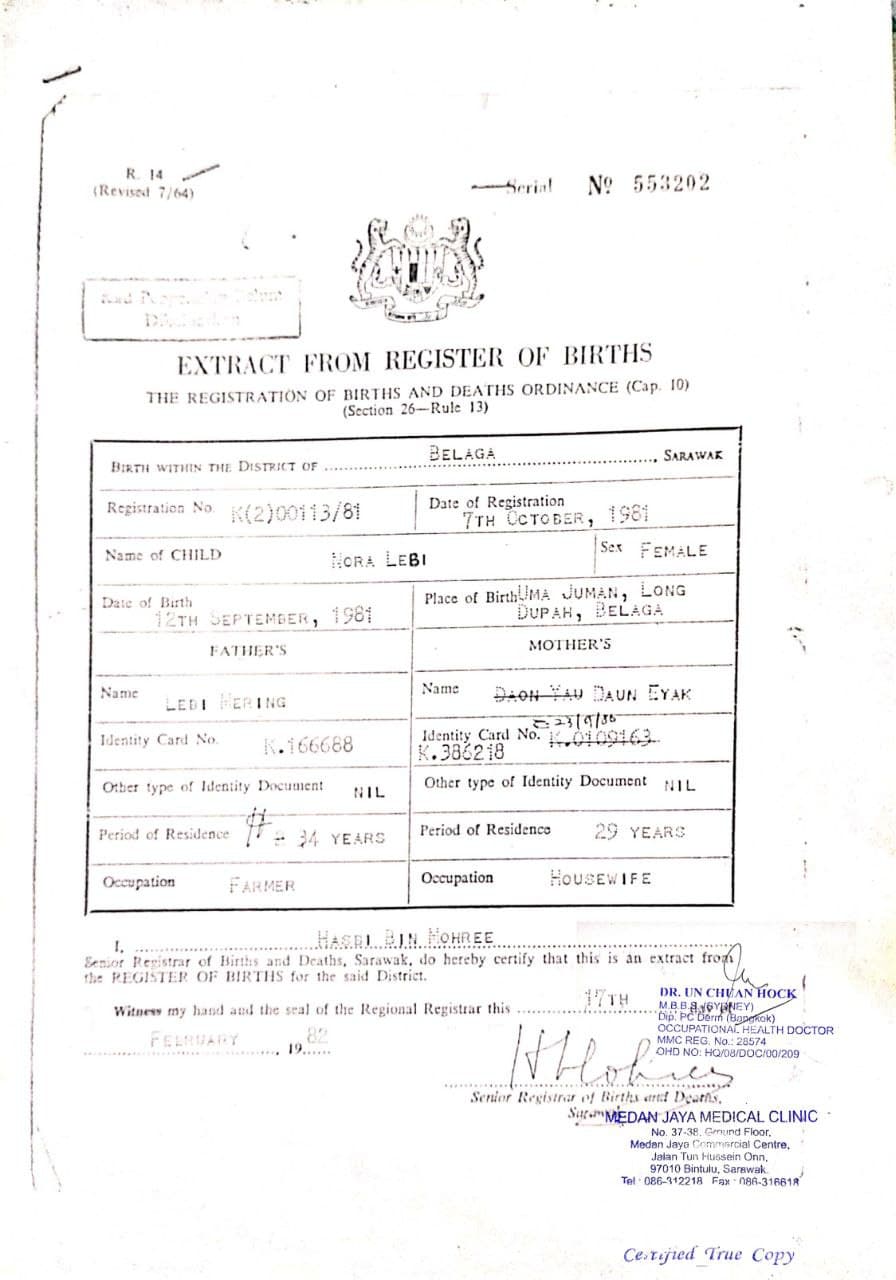 R. 14
(Revised 7/64)
Serial Nº 553202
EXTRACT FROM REGISTER OF BIRTHS
THE REGISTRATION OF BIRTHS AND DEATHS ORDINANCE (Cap. 10)
(Section 26—Rule 13)
BIRTH WITHIN THE DISTRICT OF BELAGA, SARAWAK
Registration No. K(2)00113/81
Date of Registration
7TH OCTOBER, 1981
Name of CHILD NORA LEBI
Sex FEMALE
Date of Birth
12TH SEPTEMBER, 1981
Place of Birth UMA JUMAN, LONG
DUPAH, BELAGA
FATHER'S
MOTHER'S
Name LEBI MERING
Name DAON YAU DAUN EYAK
23/9/86
Identity Card No. K.166688
Identity Card No. K.0109163
K.386218
Other type of Identity Document NIL
Other type of Identity Document NIL
Period of Residence 34 YEARS
Period of Residence 29 YEARS
Occupation FARMER
Occupation HOUSEWIFE
I, HASBI BIN MOHREE
Senior Registrar of Births and Deaths, Sarawak, do hereby certify that this is an extract from
the REGISTER OF BIRTHS for the said District.
Witness my hand and the seal of the Regional Registrar this 17TH
FEBRUARY, 1982
DR. UN CHUAN HOCK
M.B.B.S. (SYDNEY)
Dip. PC Derm (Bangkok)
OCCUPATIONAL HEALTH DOCTOR
MMC REG. No.: 28574
OHD NO: HQ/08/DOC/00/209
Senior Registrar of Births and Deaths,
Sarawak
MEDAN JAYA MEDICAL CLINIC
No. 37-38, Ground Floor,
Medan Jaya Commercial Centre,
Jalan Tun Hussein Onn,
97010 Bintulu, Sarawak.
Tel : 086-312218 Fax : 086-316618
Certified True Copy